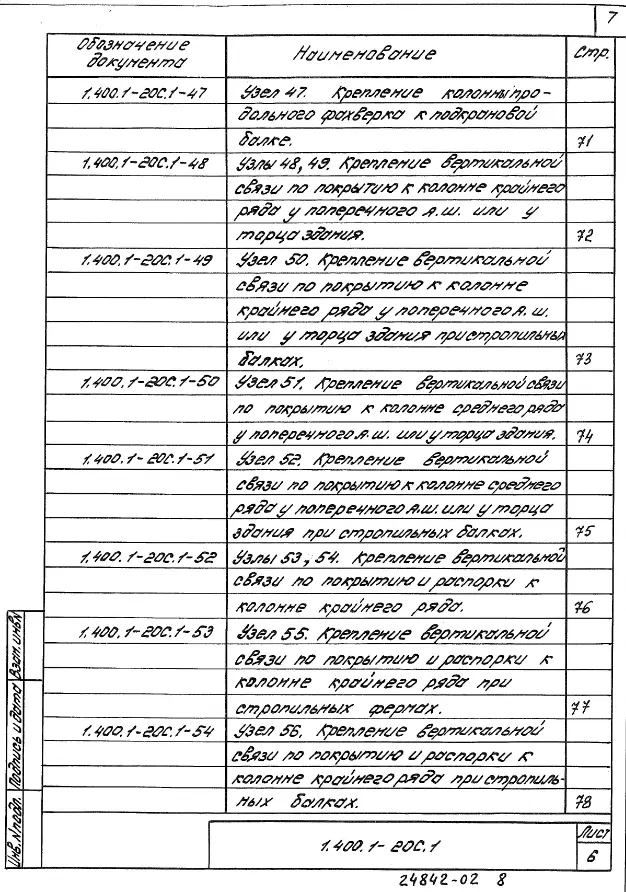 7
Обозначение документа Наименование Стр.
1.400.1-20С.1-47 Узел 47. Крепление колонны про-
дольного фахверка к подкрановой
балке. 71
1.400.1-20С.1-48 Узлы 48, 49. Крепление вертикальной
связи по покрытию к колонне крайнего
ряда у поперечного д.ш. или у
торца здания. 72
1.400.1-20С.1-49 Узел 50. Крепление вертикальной
связи по покрытию к колонне
крайнего ряда у поперечного д.ш.
или у торца здания при стропильных
балках. 73
1.400.1-20С.1-50 Узел 51. Крепление вертикальной связи
по покрытию к колонне среднего ряда
у поперечного д.ш. или у торца здания. 74
1.400.1-20С.1-51 Узел 52. Крепление вертикальной
связи по покрытию к колонне среднего
ряда у поперечного д.ш. или у торца
здания при стропильных балках. 75
1.400.1-20С.1-52 Узлы 53, 54. Крепление вертикальной
связи по покрытию и распорки к
колонне крайнего ряда. 76
1.400.1-20С.1-53 Узел 55. Крепление вертикальной
связи по покрытию и распорки к
колонне крайнего ряда при
стропильных фермах. 77
1.400.1-20С.1-54 Узел 56. Крепление вертикальной
связи по покрытию и распорки к
колонне крайнего ряда при стропиль-
ных балках. 78
Инв.№подл. Подпись и дата Взам.инв.№
1.400.1-20С.1
Лист
6
24842-02 8